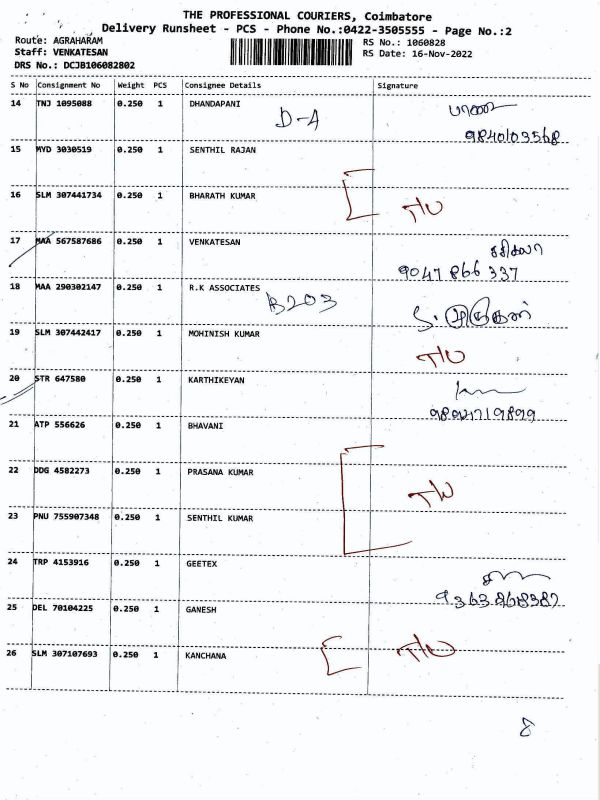 THE PROFESSIONAL COURIERS, Coimbatore
Delivery Runsheet - PCS - Phone No.:0422-3505555 - Page No.:2
Route: AGRAHARAM
Staff: VENKATESAN
DRS No.: DCJB106082802
RS No.: 1060828
RS Date: 16-Nov-2022
S No Consignment No Weight PCS Consignee Details Signature
14 TNJ 1095088 0.250 1 DHANDAPANI
D-A
9840103568
15 MYD 3030519 0.250 1 SENTHIL RAJAN
16 SLM 307441734 0.250 1 BHARATH KUMAR
T/U
17 MAA 567587686 0.250 1 VENKATESAN
சசிகலா
9047 866 337
18 MAA 290302147 0.250 1 R.K ASSOCIATES
B203
19 SLM 307442417 0.250 1 MOHINISH KUMAR
T/U
20 STR 647580 0.250 1 KARTHIKEYAN
21 ATP 556626 0.250 1 BHAVANI
22 DDG 4582273 0.250 1 PRASANA KUMAR
T/U
23 PNU 755907348 0.250 1 SENTHIL KUMAR
24 TRP 4153916 0.250 1 GEETEX
9363868387
25 DEL 70104225 0.250 1 GANESH
26 SLM 307107693 0.250 1 KANCHANA
T/U
8